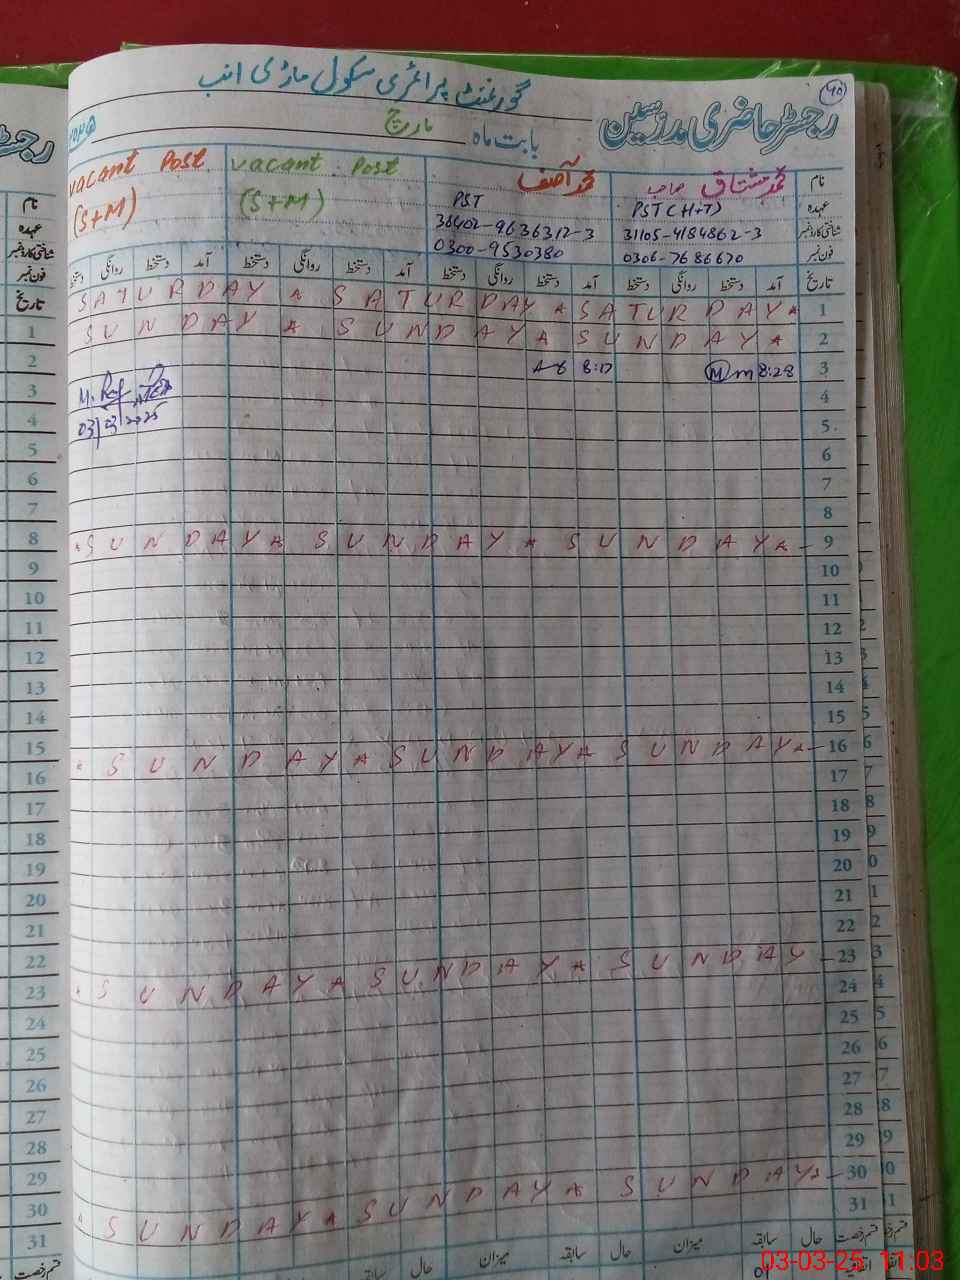 ۴۰
رجسٹر حاضری مدرسین
گورنمنٹ پرائمری سکول ماڑی
بابت ماہ مارچ
نام محمد مشتاق صاحب محمد آصف vacant Post vacant Post
عہدہ PST (H+T) PST (S+M) (S+M)
شناختی کارڈ نمبر 31105-4184862-3 36402-9636312-3
فون نمبر 0306-7686670 0300-9530380
تاریخ آمد دستخط روانگی دستخط آمد دستخط روانگی دستخط آمد دستخط روانگی دستخط آمد دستخط روانگی دستخط
1 SATURDAY * SATURDAY * SATURDAY *
2 SUNDAY * SUNDAY * SUNDAY *
3 8:28 8:17
4
03/03/2025
5
6
7
8
9 * SUNDAY * SUNDAY * SUNDAY *
10
11
12
13
14
15
16 * SUNDAY * SUNDAY * SUNDAY *
17
18
19
20
21
22
23 * SUNDAY * SUNDAY * SUNDAY
24
25
26
27
28
29
30 * SUNDAY * SUNDAY * SUNDAY *
31
قسم رخصت سابقہ حال میزان سابقہ حال میزان سابقہ حال
رجسٹر
نام
عہدہ
شناختی کارڈ نمبر
فون نمبر
تاریخ
1
2
3
4
5
6
7
8
9
10
11
12
13
14
15
16
17
18
19
20
21
22
23
24
25
26
27
28
29
30
31
قسم رخصت
03-03-25 11:03